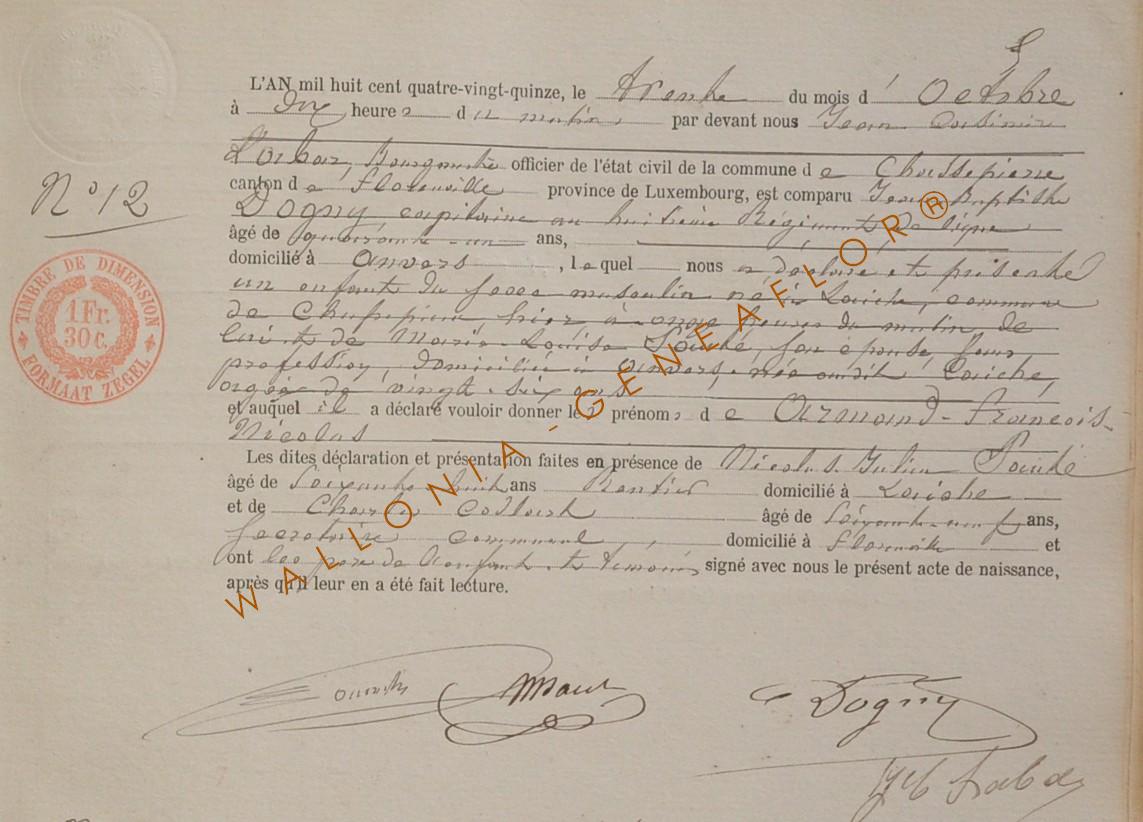 L'AN mil huit cent quatre-vingt-quinze, le trente du mois d' Octobre
à dix heures du matin, par devant nous Jean
Bourgmestre officier de l'état civil de la commune de Chassepierre
N° 12
canton de Florenville province de Luxembourg, est comparu Jean Baptiste
Dogny capitaine au huitième Régiment de ligne
âgé de quarante-un ans,
domicilié à Anvers, lequel nous a déclaré et présenté
un enfant du sexe masculin né à Laiche, commune
de Chassepierre hier à onze heures du matin, de
lui et de Marie-Louise son épouse, sans
profession, domiciliée à Anvers, née audit Laiche,
âgée de vingt-six ans
et auquel il a déclaré vouloir donner les prénoms de Armand-François-
Nicolas
Les dites déclaration et présentation faites en présence de Nicolas Julien
âgé de soixante-huit ans Rentier domicilié à Laiche
et de Charles âgé de soixante-neuf ans,
secrétaire communal, domicilié à Florenville et
ont les père de l'enfant et témoins signé avec nous le présent acte de naissance,
après qu'il leur en a été fait lecture.
TIMBRE DE DIMENSION
1 Fr.
30 c.
FORMAAT ZEGEL
Dogny
WALLONIA - GENEAFLOR®